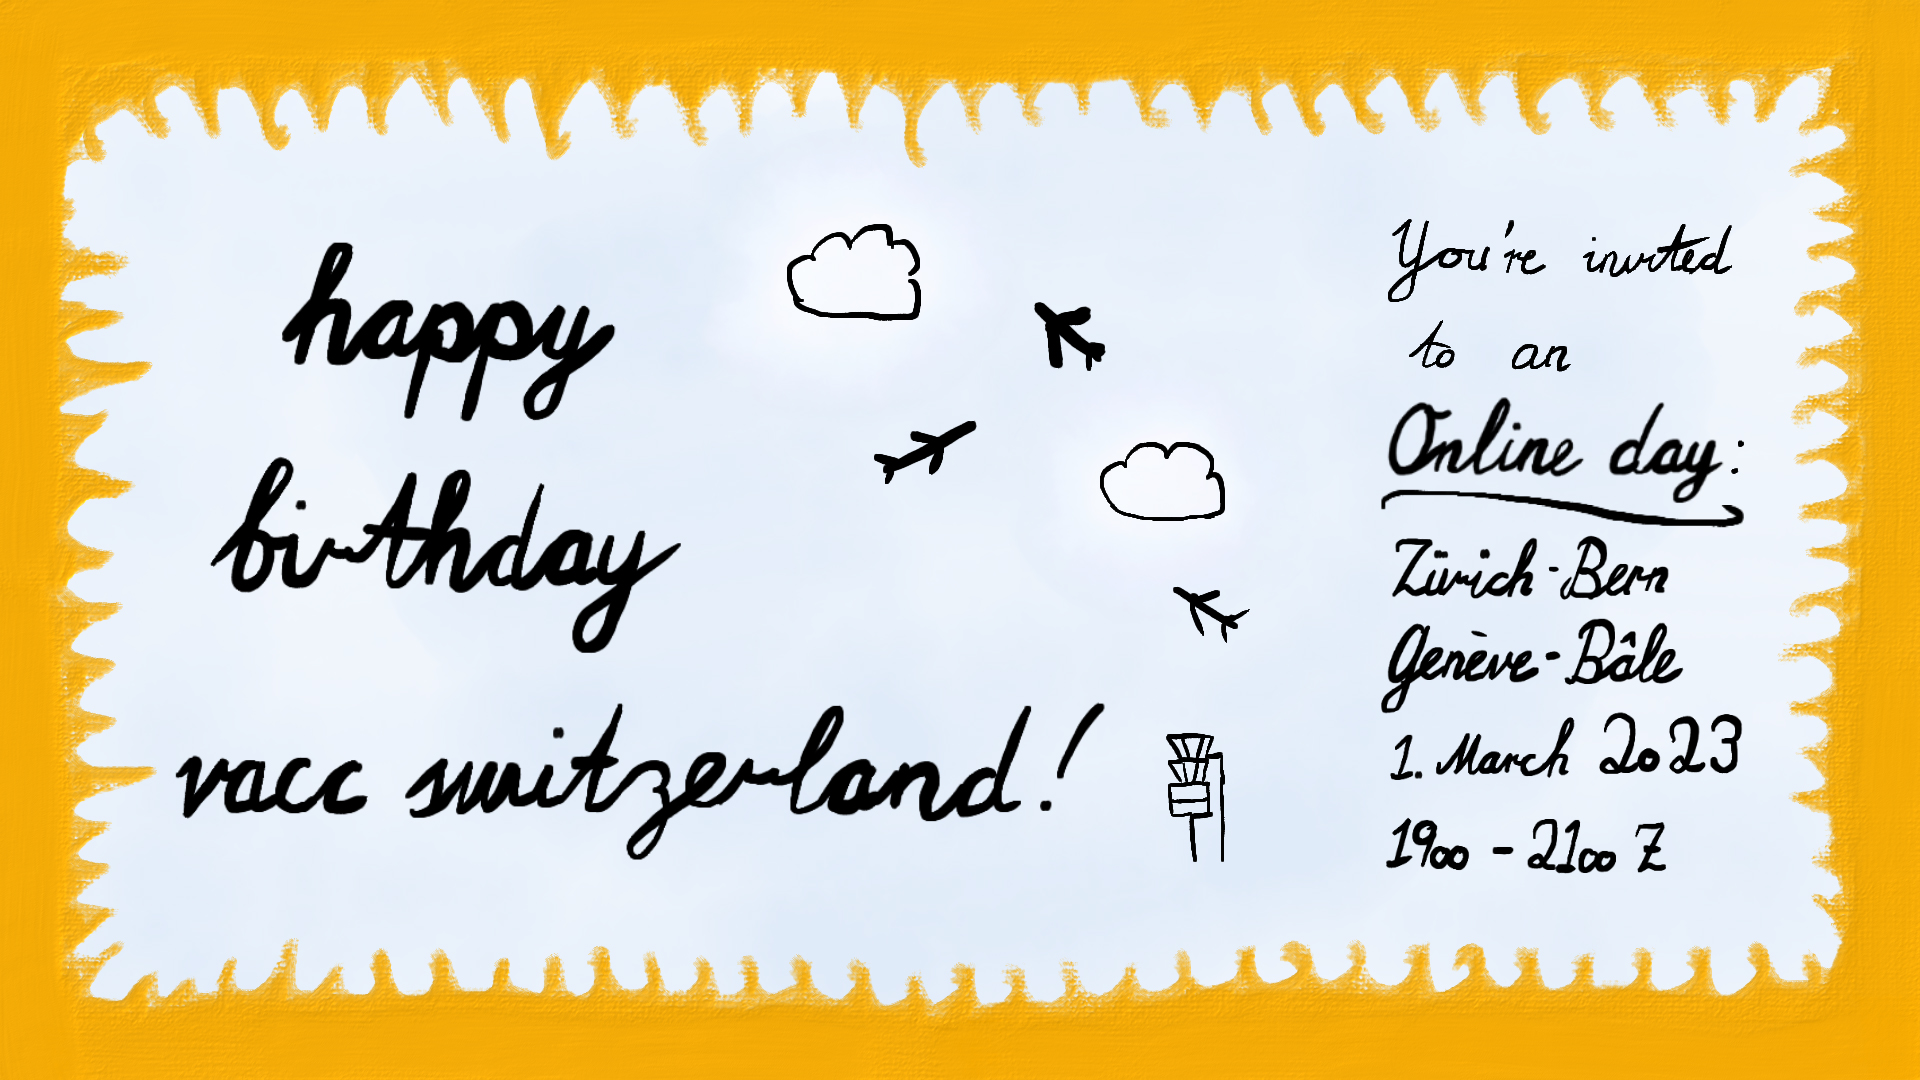 happy
birthday
vacc switzerland!
You're invited
to an
Online day:
Zürich-Bern
Genève-Bâle
1. March 2023
1900 - 2100 Z